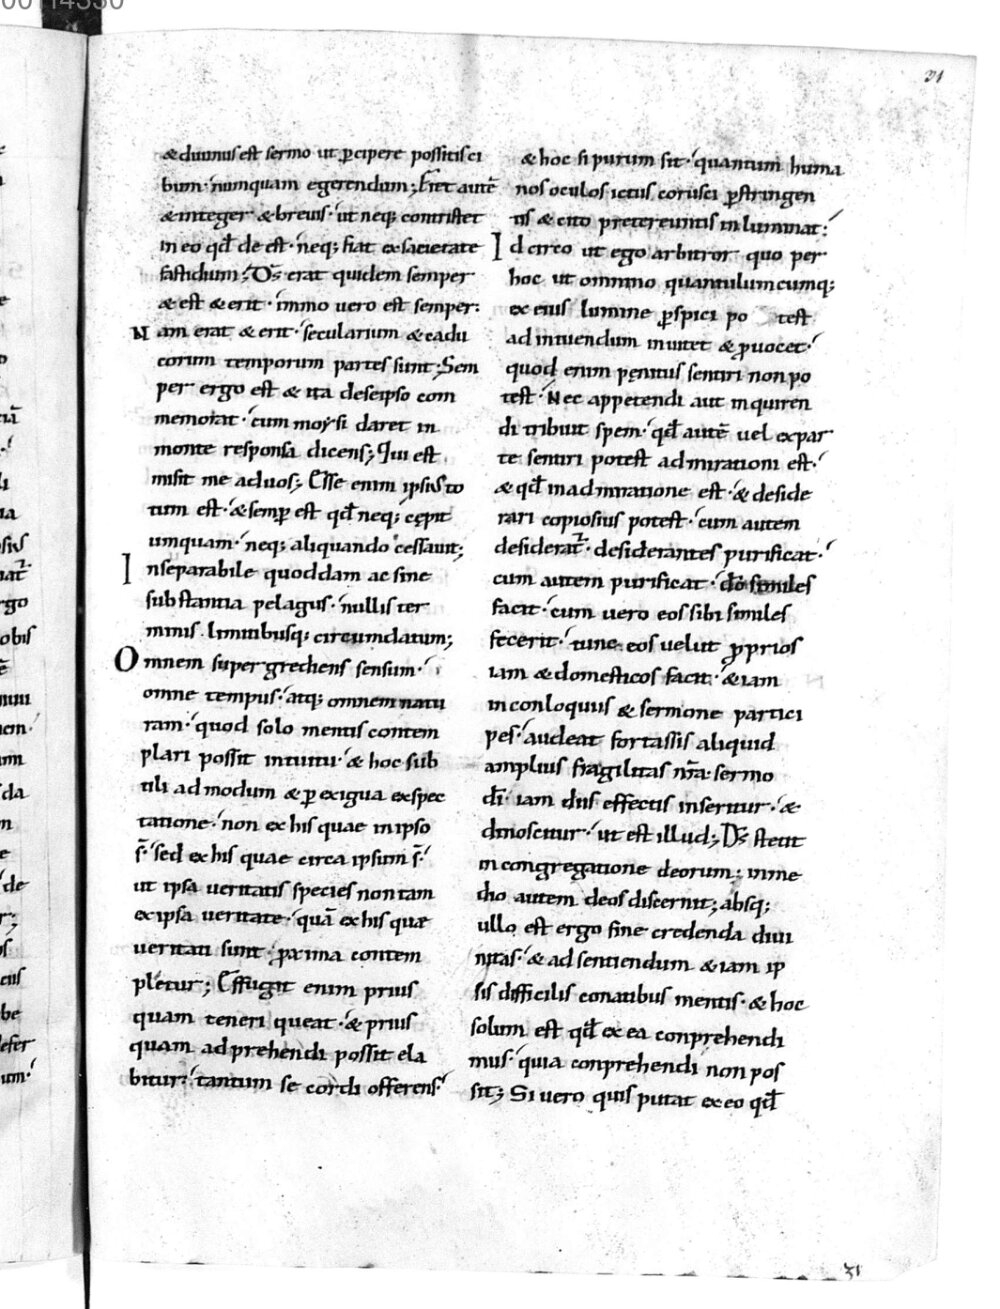 00114330
21
& diuinus est sermo ut p̱cipere possitis ci
bum · numquam egerendum; Eret autē
& integer & breuis · ut neq; contristet
in eo qđ de est · neq; fiat ex sacietate
fastidium; Dꝭ erat quidem semper
& est & erit · immo uero est semper:
Nam erat & erit · secularium & cadu
corum temporum partes sunt; Sem
per ergo est & ita deseipso com
memorat · cum moysi daret in
monte responsa dicens; Qui est
misit me aduos; Esse enim ipsius to
tum est · & semp̱ est qđ neq; cępit
umquam · neq; aliquando cessauit;
Inseparabile quoddam ac sine
substantia pelagus · nullis ter
minis limitibusq; circumdatum;
Omnem supergrediens sensum ·
omne tempus · atq; omnem natu
ram · quod solo mentis contem
plari possit intuitu · & hoc sub
tili admodum & p̱ exigua exspec
tatione · non ex his quae in ipso
s̄ · sed ex his quae circa ipsum s̄ ·
ut ipsa ueritatis species non tam
ex ipsa ueritate · quā ex his quae
ueritati sunt · proxima contem
pletur; Effugit enim prius
quam teneri queat · & prius
quam adprehendi possit ela
bitur · tantum se cordi offerens ·
& hoc si purum sit · quantum huma
nos oculos ictus corusci p̱stringen
tis & cito pretereuntis inluminat:
Idcirco ut ego arbitror quo per
hoc ut omnino quantulumcumq;
ex eius lumine p̱spici po test
ad intuendum inuitet & ꝓuocet ·
quod enim penitus sentiri non po
test · Nec appetendi aut inquiren
di tribuit spem · qđ autē uel ex par
te sentiri potest admirationi est ·
& qđ in admiratione est · & deside
rari copiosius potest · cum autem
desiderat̄ · desiderantes purificat ·
cum autem purificat · dō similes
facit · cum uero eos sibi similes
fecerit · tunc eos uelut ꝓprios
iam & domesticos facit · & iam
in conloquiis & sermone partici
pes · audeat fortassis aliquid
amplius fragilitas nr̄a · sermo
dī iam diis effectis inseritur · &
dinoscitur · ut est illud; Dꝭ stetit
in congregatione deorum; in me
dio autem deos discernit; absq;
ullo est ergo fine credenda diui
nitas · & ad sentiendum & iam ip
sis difficilis conatibus mentis · & hoc
solum est qđ ex ea conprehendi
mus · quia conprehendi non pos
sit; Si uero quis putat ex eo qđ
31